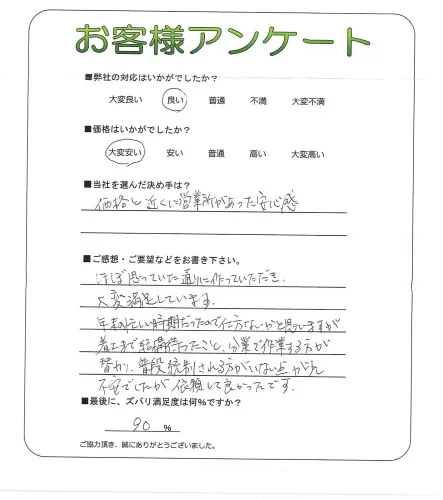 お客様アンケート
■弊社の対応はいかがでしたか?
大変良い 良い 普通 不満 大変不満
■価格はいかがでしたか?
大変安い 安い 普通 高い 大変高い
■当社を選んだ決め手は?
価格と近くに営業所があった安心感
■ご感想・ご要望などをお書き下さい。
ほぼ思っていた通りに作っていただき、
大変満足しています。
年末の忙しい時期だったので仕方ないかと思いますが
着工まで結構待ったこと、分業で作業する方が
替わり、普段統制される方がいない点が
不安でしたが依頼して良かったです。
■最後に、ズバリ満足度は何%ですか?
90 %
ご協力頂き、誠にありがとうございました。